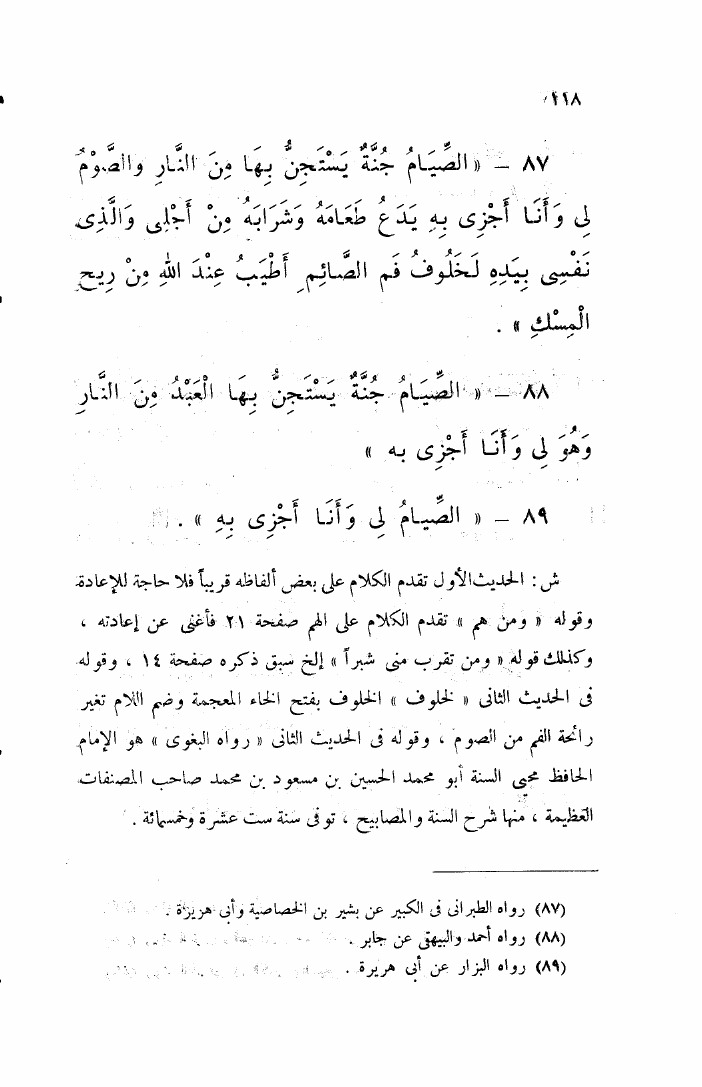 ٢١٨
٨٧ – « الصِّيَامُ جُنَّةٌ يَسْتَجِنُّ بِهَا مِنَ النَّارِ والصَّوْمُ
لِى وَأَنَا أَجْزِى بِهِ يَدَعُ طَعَامَهُ وَشَرَابَهُ مِنْ أَجْلِى وَالَّذِى
نَفْسِى بِيَدِهِ لَخَلُوفُ فَمِ الصَّائِمِ أَطْيَبُ عِنْدَ اللهِ مِنْ رِيحِ
الْمِسْكِ » .
٨٨ – « الصِّيَامُ جُنَّةٌ يَسْتَجِنُّ بِهَا الْعَبْدُ مِنَ النَّارِ
وَهُوَ لِى وَأَنَا أَجْزِى به »
٨٩ – « الصِّيامُ لِى وَأَنَا أَجْزِى بِهِ » .
ش : الحديث الأول تقدم الكلام على بعض ألفاظه قريباً فلا حاجة للإعادة
وقوله « ومن هم » تقدم الكلام على الهم صفحة ٢١ فأغنى عن إعادته ،
وكذلك قوله « ومن تقرب منى شبراً » إلخ سبق ذكره صفحة ١٤ ، وقوله
فى الحديث الثانى « لخلوف » الخلوف بفتح الخاء المعجمة وضم اللام تغير
رائحة الفم من الصوم ، وقوله فى الحديث الثانى « رواه البغوى » هو الإمام
الحافظ محيى السنة أبو محمد الحسين بن مسعود بن محمد صاحب المصنفات
العظيمة ، منها شرح السنة والمصابيح ، توفى سنة ست عشرة وخمسمائة .
(٨٧) رواه الطبرانى فى الكبير عن بشير بن الخصاصية وأبى هريرة .
(٨٨) رواه أحمد والبيهقى عن جابر .
(٨٩) رواه البزار عن أبى هريرة .